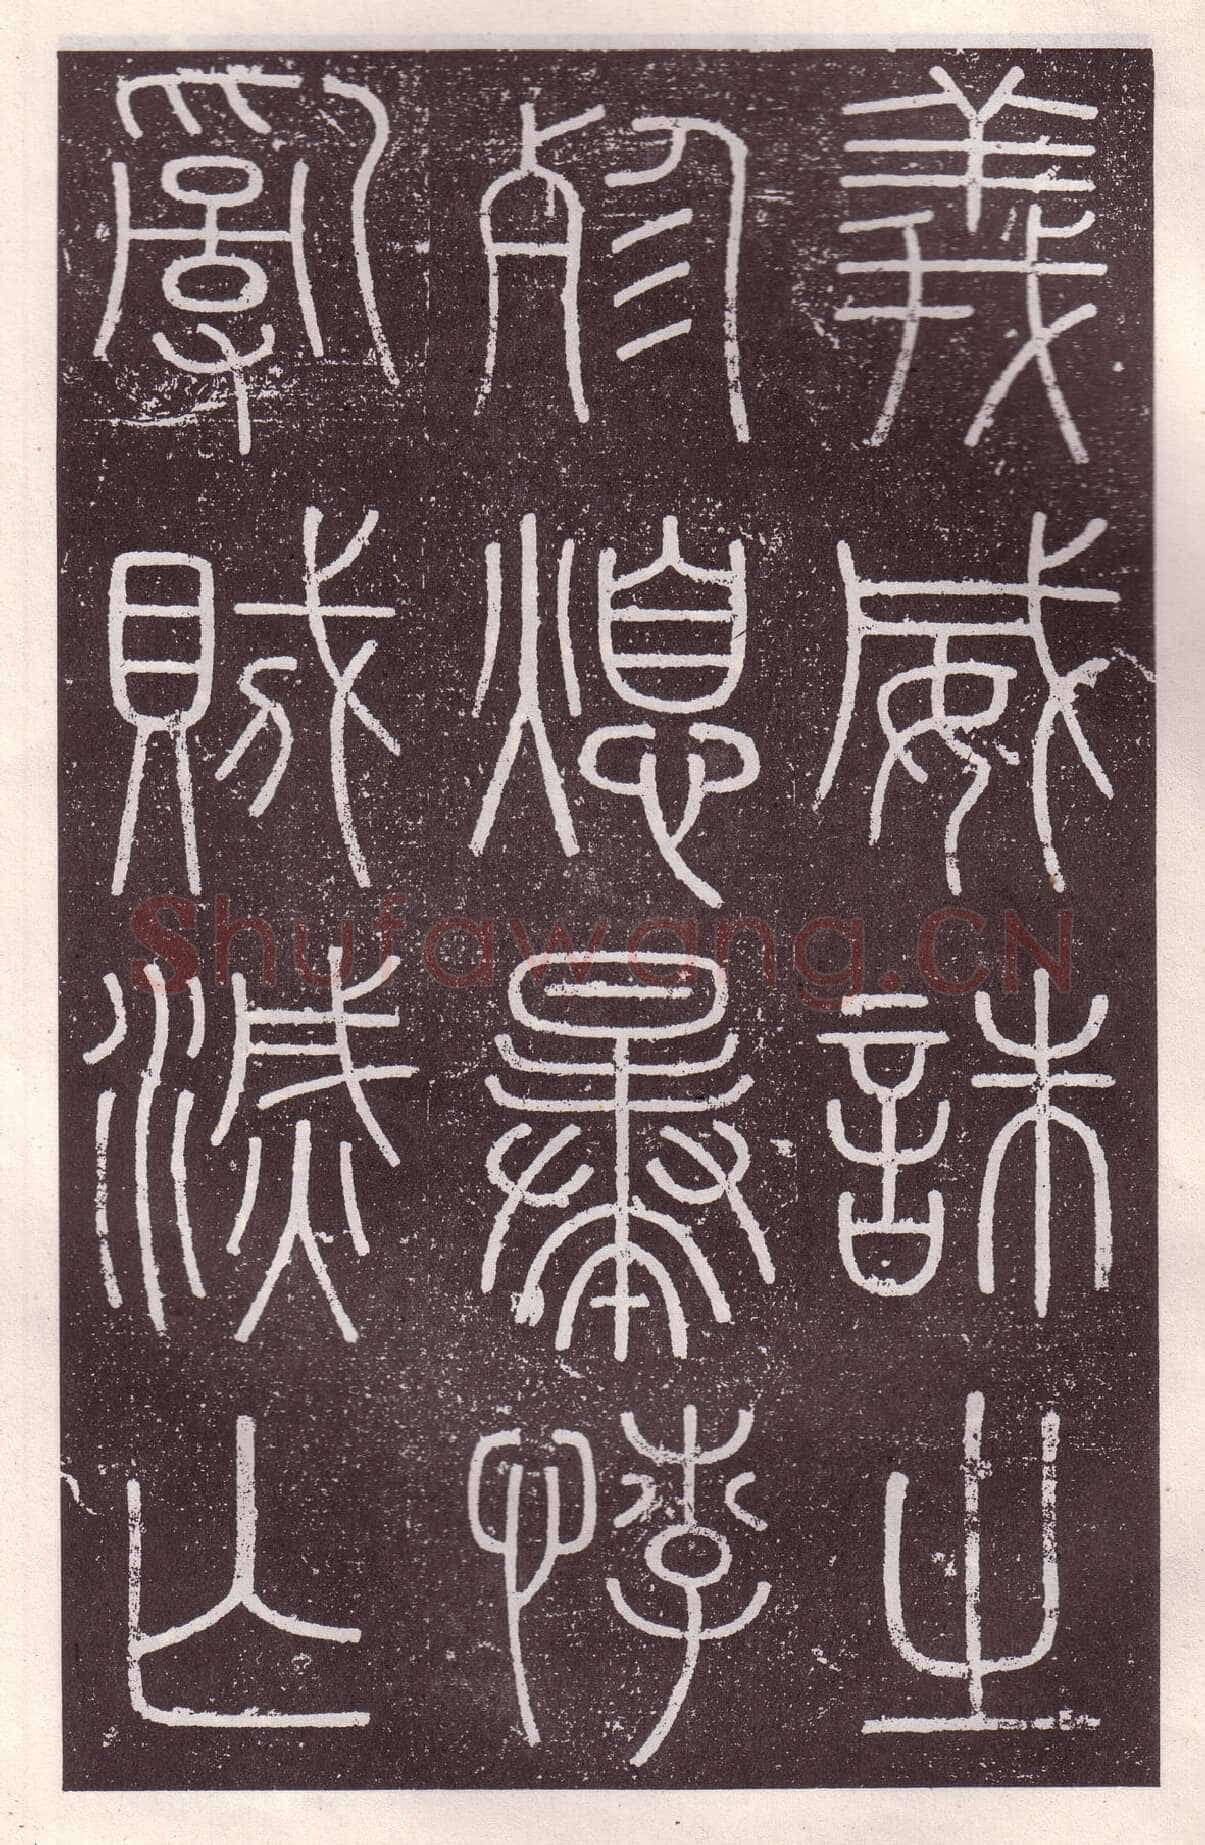 義威誅之
殄熄暴悖
亂賊滅亡
Shufawang.CN